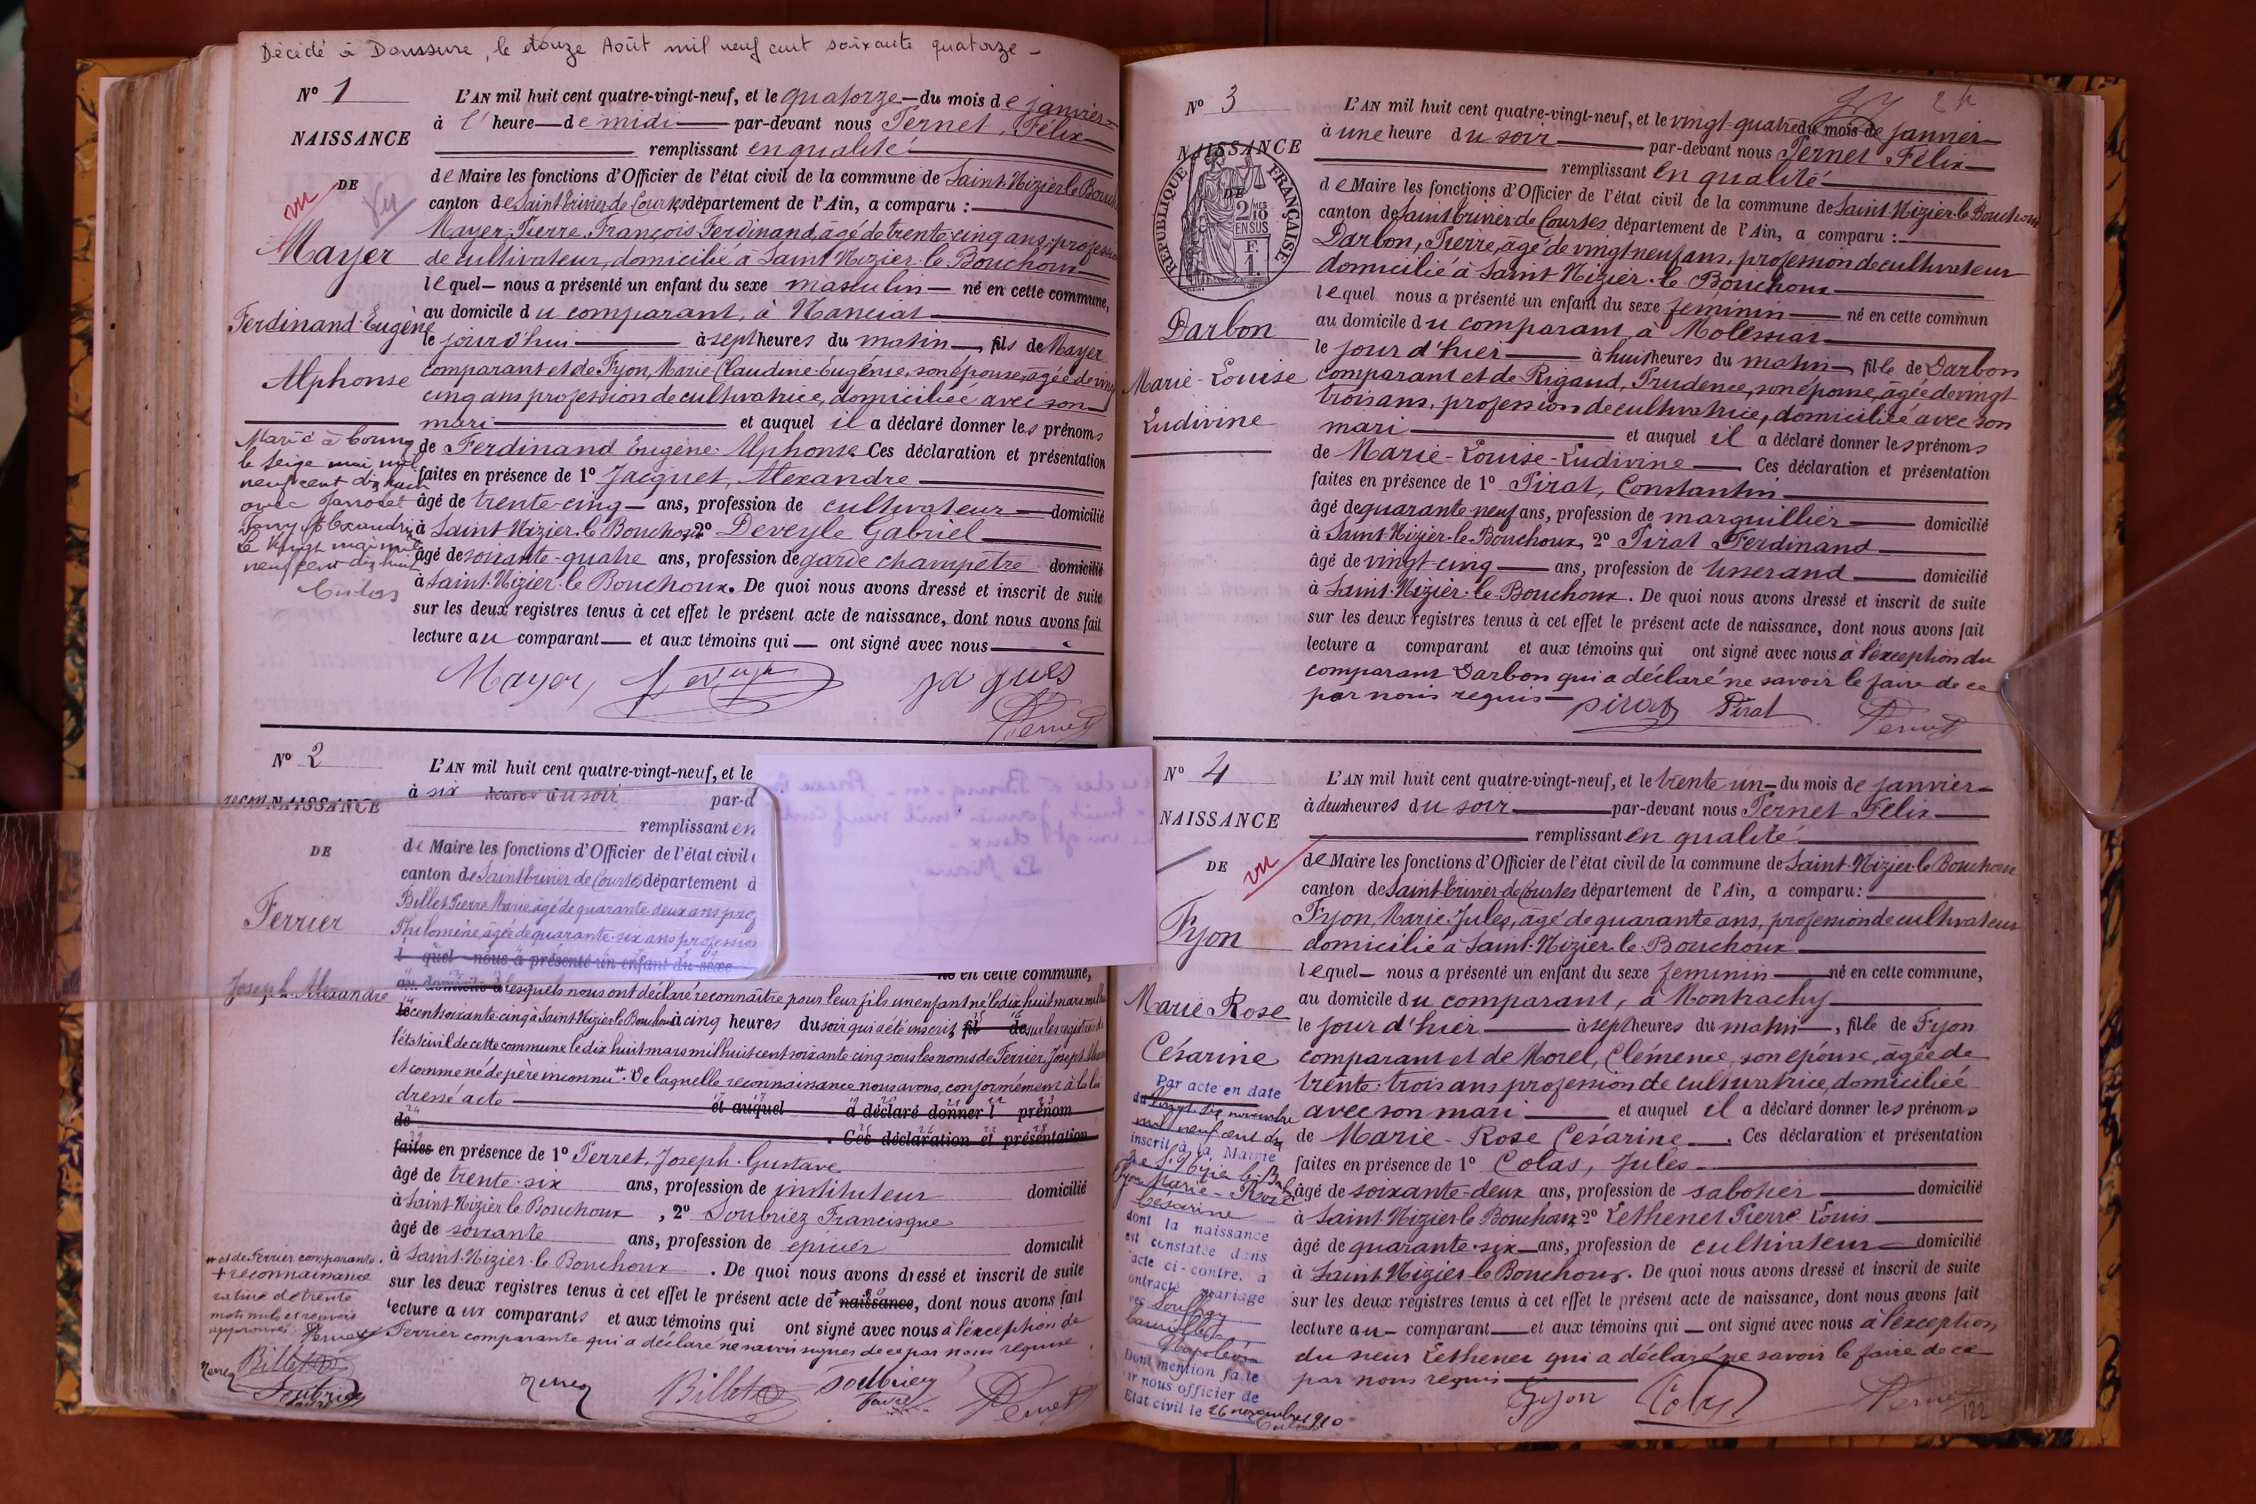 Décédé à Doussure, le douze Août mil neuf cent soixante quatorze -
N° 1
NAISSANCE
DE
vu
Mayer
Ferdinand-Eugène
Alphonse
Marié à Bourg
le seize mai mil
neuf cent dix huit
avec
le vingt mai mil
neuf cent dix huit
L'AN mil huit cent quatre-vingt-neuf, et le quatorze du mois de janvier
à l'heure de midi par-devant nous Pernet, Félix
remplissant en qualité
de Maire les fonctions d'Officier de l'état civil de la commune de Saint-Nizier le Bouch
canton de Saint Trivier de Courtes département de l'Ain, a comparu :
Mayer, Pierre François Ferdinand, âgé de trente-cinq ans, profession
de cultivateur, domicilié à Saint Nizier-le Bouchoux
lequel nous a présenté un enfant du sexe masculin né en cette commune,
au domicile du comparant, à Manciat
le jourd'hui à sept heures du matin, fils de Mayer
comparant et de Fyon, Marie Claudine Eugénie, son épouse, âgée de vingt
cinq ans profession de cultivatrice, domiciliée avec son
mari et auquel il a déclaré donner les prénoms
de Ferdinand Eugène Alphonse Ces déclaration et présentation
faites en présence de 1° Jacquet, Alexandre
âgé de trente-cinq ans, profession de cultivateur domicilié
à Saint Nizier-le-Bouchoux 2° Deveyle Gabriel
âgé de soixante-quatre ans, profession de garde champêtre domicilié
à Saint-Nizier-le Bouchoux. De quoi nous avons dressé et inscrit de suite
sur les deux registres tenus à cet effet le présent acte de naissance, dont nous avons fait
lecture au comparant et aux témoins qui ont signé avec nous
Mayer Jaques
Pernet
N° 2
NAISSANCE
DE
Ferrier
Joseph-Alexandre
L'AN mil huit cent quatre-vingt-neuf, et le
à six heures du soir par-d
remplissant en
de Maire les fonctions d'Officier de l'état civil
canton de Saint Trivier de Courtes département d
Billet Pierre Marie âgé de quarante deux ans prof
Philomène, âgée de quarante-six ans profession
l quel nous a présenté un enfant du sexe né en cette commune,
au domicile d lesquels nous ont déclaré reconnaître pour leur fils un enfant né le dix huit mars mil huit
cent soixante-cinq à Saint Nizier le Bouchoux à cinq heures du soir qui a été inscrit fil de sur les registres de
l'état civil de cette commune le dix huit mars mil huit cent soixante cinq sous les noms de Ferrier, Joseph Alexandre
et comme né de père inconnu. De laquelle reconnaissance nous avons, conformément à la loi
dressé acte et auquel a déclaré donner l prénom
de . Ces déclaration et présentation
faites en présence de 1° Perret, Joseph-Gustave
âgé de trente-six ans, profession de instituteur domicilié
à Saint Nizier le Bouchoux, 2° Soubriez Francisque
âgé de soixante ans, profession de épicier domicilié
à Saint-Nizier-le Bouchoux. De quoi nous avons dressé et inscrit de suite
sur les deux registres tenus à cet effet le présent acte de naissance, dont nous avons fait
lecture aux comparants et aux témoins qui ont signé avec nous à l'exception de
Ferrier comparante qui a déclaré ne savoir signer de ce par nous requise
et de Ferrier comparante.
+ reconnaissance
rature de trente
mots nuls et renvois
approuvés Pernet
Billet
Soubriez
Billet Soubriez Pernet
N° 3
NAISSANCE
DE
RÉPUBLIQUE FRANÇAISE
2/10
EN SUS
F.
1.
Darbon
Marie-Louise
Ludivine
L'AN mil huit cent quatre-vingt-neuf, et le vingt-quatre du mois de janvier
à une heure du soir par-devant nous Pernet Félix
remplissant en qualité
de Maire les fonctions d'Officier de l'état civil de la commune de Saint-Nizier-le Bouchoux
canton de Saint Trivier-de Courtes département de l'Ain, a comparu :
Darbon, Pierre, âgé de vingt neuf ans, profession de cultivateur
domicilié à Saint Nizier-le Bouchoux
lequel nous a présenté un enfant du sexe féminin né en cette commun
au domicile du comparant à Molessiat
le jour d'hier à huit heures du matin, fille de Darbon
comparant et de Rigaud, Prudence, son épouse, âgée de vingt
trois ans, profession de cultivatrice, domiciliée avec son
mari et auquel il a déclaré donner les prénoms
de Marie-Louise-Ludivine. Ces déclaration et présentation
faites en présence de 1° Pirat, Constantin
âgé de quarante-neuf ans, profession de marguillier domicilié
à Saint-Nizier-le-Bouchoux, 2° Pirat Ferdinand
âgé de vingt-cinq ans, profession de tisserand domicilié
à Saint-Nizier-le-Bouchoux. De quoi nous avons dressé et inscrit de suite
sur les deux registres tenus à cet effet le présent acte de naissance, dont nous avons fait
lecture a comparant et aux témoins qui ont signé avec nous à l'exception du
comparant Darbon qui a déclaré ne savoir le faire de ce
par nous requis
pirat Pirat Pernet
N° 4
NAISSANCE
DE
vu
Fyon
Marie Rose
Césarine
Par acte en date
du vingt six novembre
mil neuf cent dix
inscrit à la Mairie
de St Nizier le Bx
Fyon Marie-Rose
Césarine
dont la naissance
est constatée dans
acte ci-contre, a
ontracté mariage
Napoléon
Dont mention faite
ar nous officier de
Etat civil le 26 novembre 1910
L'AN mil huit cent quatre-vingt-neuf, et le trente un du mois de janvier
à deux heures du soir par-devant nous Pernet Félix
remplissant en qualité
de Maire les fonctions d'Officier de l'état civil de la commune de Saint-Nizier-le Bouchoux
canton de Saint-Trivier-de Courtes département de l'Ain, a comparu :
Fyon, Marie-Jules, âgé de quarante ans, profession de cultivateur
domicilié à Saint-Nizier-le-Bouchoux
lequel nous a présenté un enfant du sexe féminin né en cette commune,
au domicile du comparant, à Montrachy
le jour d'hier à sept heures du matin, fille de Fyon
comparant et de Morel, Clémence, son épouse, âgée de
trente-trois ans profession de cultivatrice, domiciliée
avec son mari et auquel il a déclaré donner les prénoms
de Marie-Rose Césarine. Ces déclaration et présentation
faites en présence de 1° Colas, Jules
âgé de soixante-deux ans, profession de sabotier domicilié
à Saint-Nizier le Bouchoux 2° Lethenet Pierre Louis
âgé de quarante-six ans, profession de cultivateur domicilié
à Saint Nizier-le Bouchoux. De quoi nous avons dressé et inscrit de suite
sur les deux registres tenus à cet effet le présent acte de naissance, dont nous avons fait
lecture au comparant et aux témoins qui ont signé avec nous à l'exception
du sieur Lethenet qui a déclaré ne savoir le faire de ce
par nous requis
Fyon Colas Pernet
122